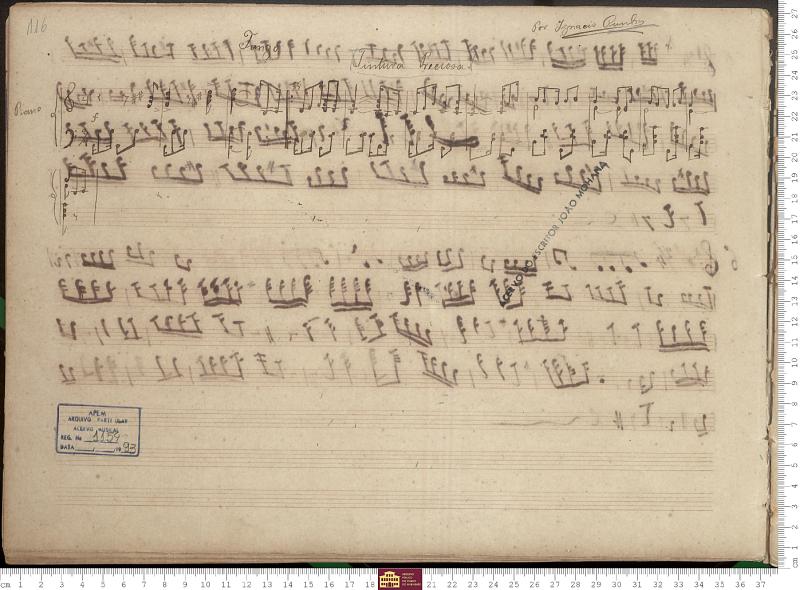 116
Por Ignacio Cunha
Tango
Pintura Preciosa
Piano
f
ACERVO DO ESCRITOR JOÃO MOHANA
APEM
ARQUIVO PARTICULAR
ACERVO MUSICAL
REG. No 1154
DATA ___/___/19 93
cm 1 2 3 4 5 6 7 8 9 10 11 12 13 14 15 16 17 18 21 22 23 24 25 26 27 28 29 30 31 32 33 34 35 36 37
cm 1 2 3 4 5 6 7 8 9 10 11 12 13 14 15 16 17 18 19 20 21 22 23 24 25 26 27